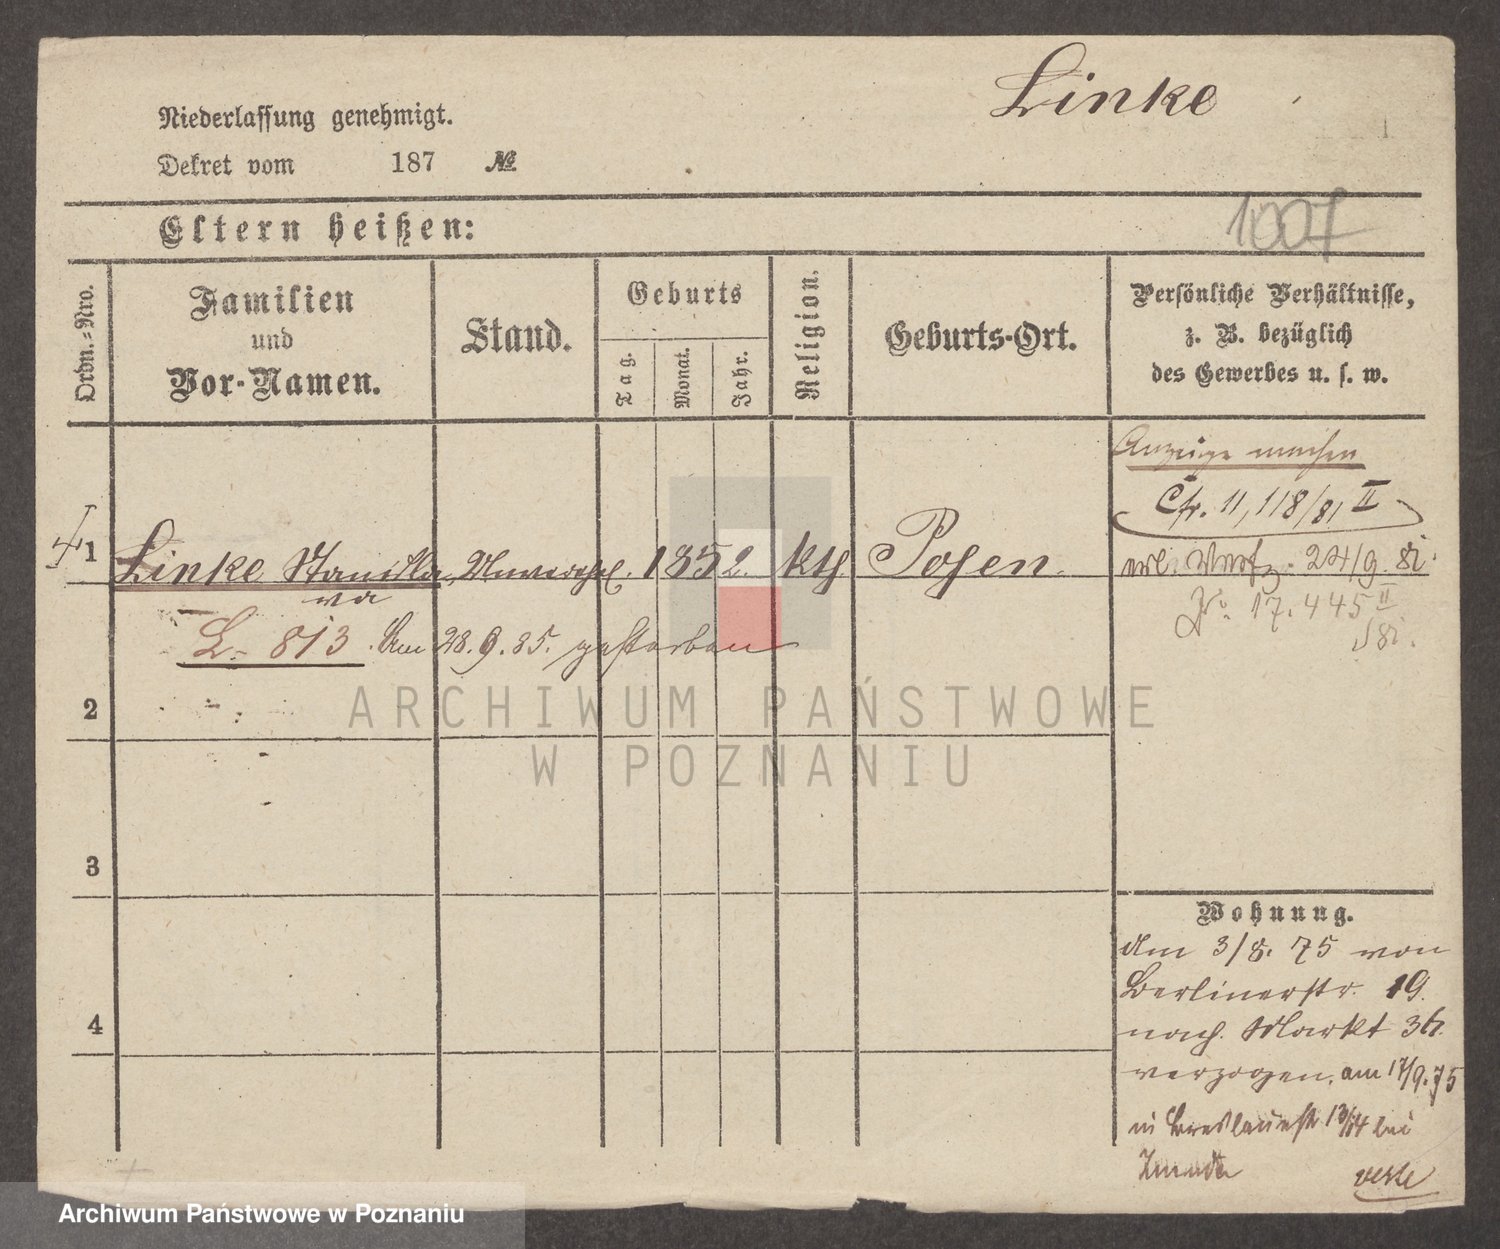 Linke
Niederlassung genehmigt.
Dekret vom 187 №
Eltern heißen:
1007
Ordn.-Nro.
Familien
und
Vor-Namen.
Stand.
Geburts
Tag.
Monat.
Jahr.
Religion.
Geburts-Ort.
Persönliche Verhältnisse,
z. B. bezüglich
des Gewerbes u. s. w.
Anzüge machen
Cfr. 11,118/81 II
1 Linke Stanisla 1852. kth. Posen.
va
24/9 81.
17.445 II
81.
L. 813. Am 28.9.85. gestorben
2
3
4
Wohnung.
Am 3/8. 75 von
Berlinerstr. 19.
nach Markt 36.
verzogen, am 17/9.75
in Breslauerstr 13/14 bei
verte
ARCHIWUM PAŃSTWOWE
W POZNANIU
Archiwum Państwowe w Poznaniu